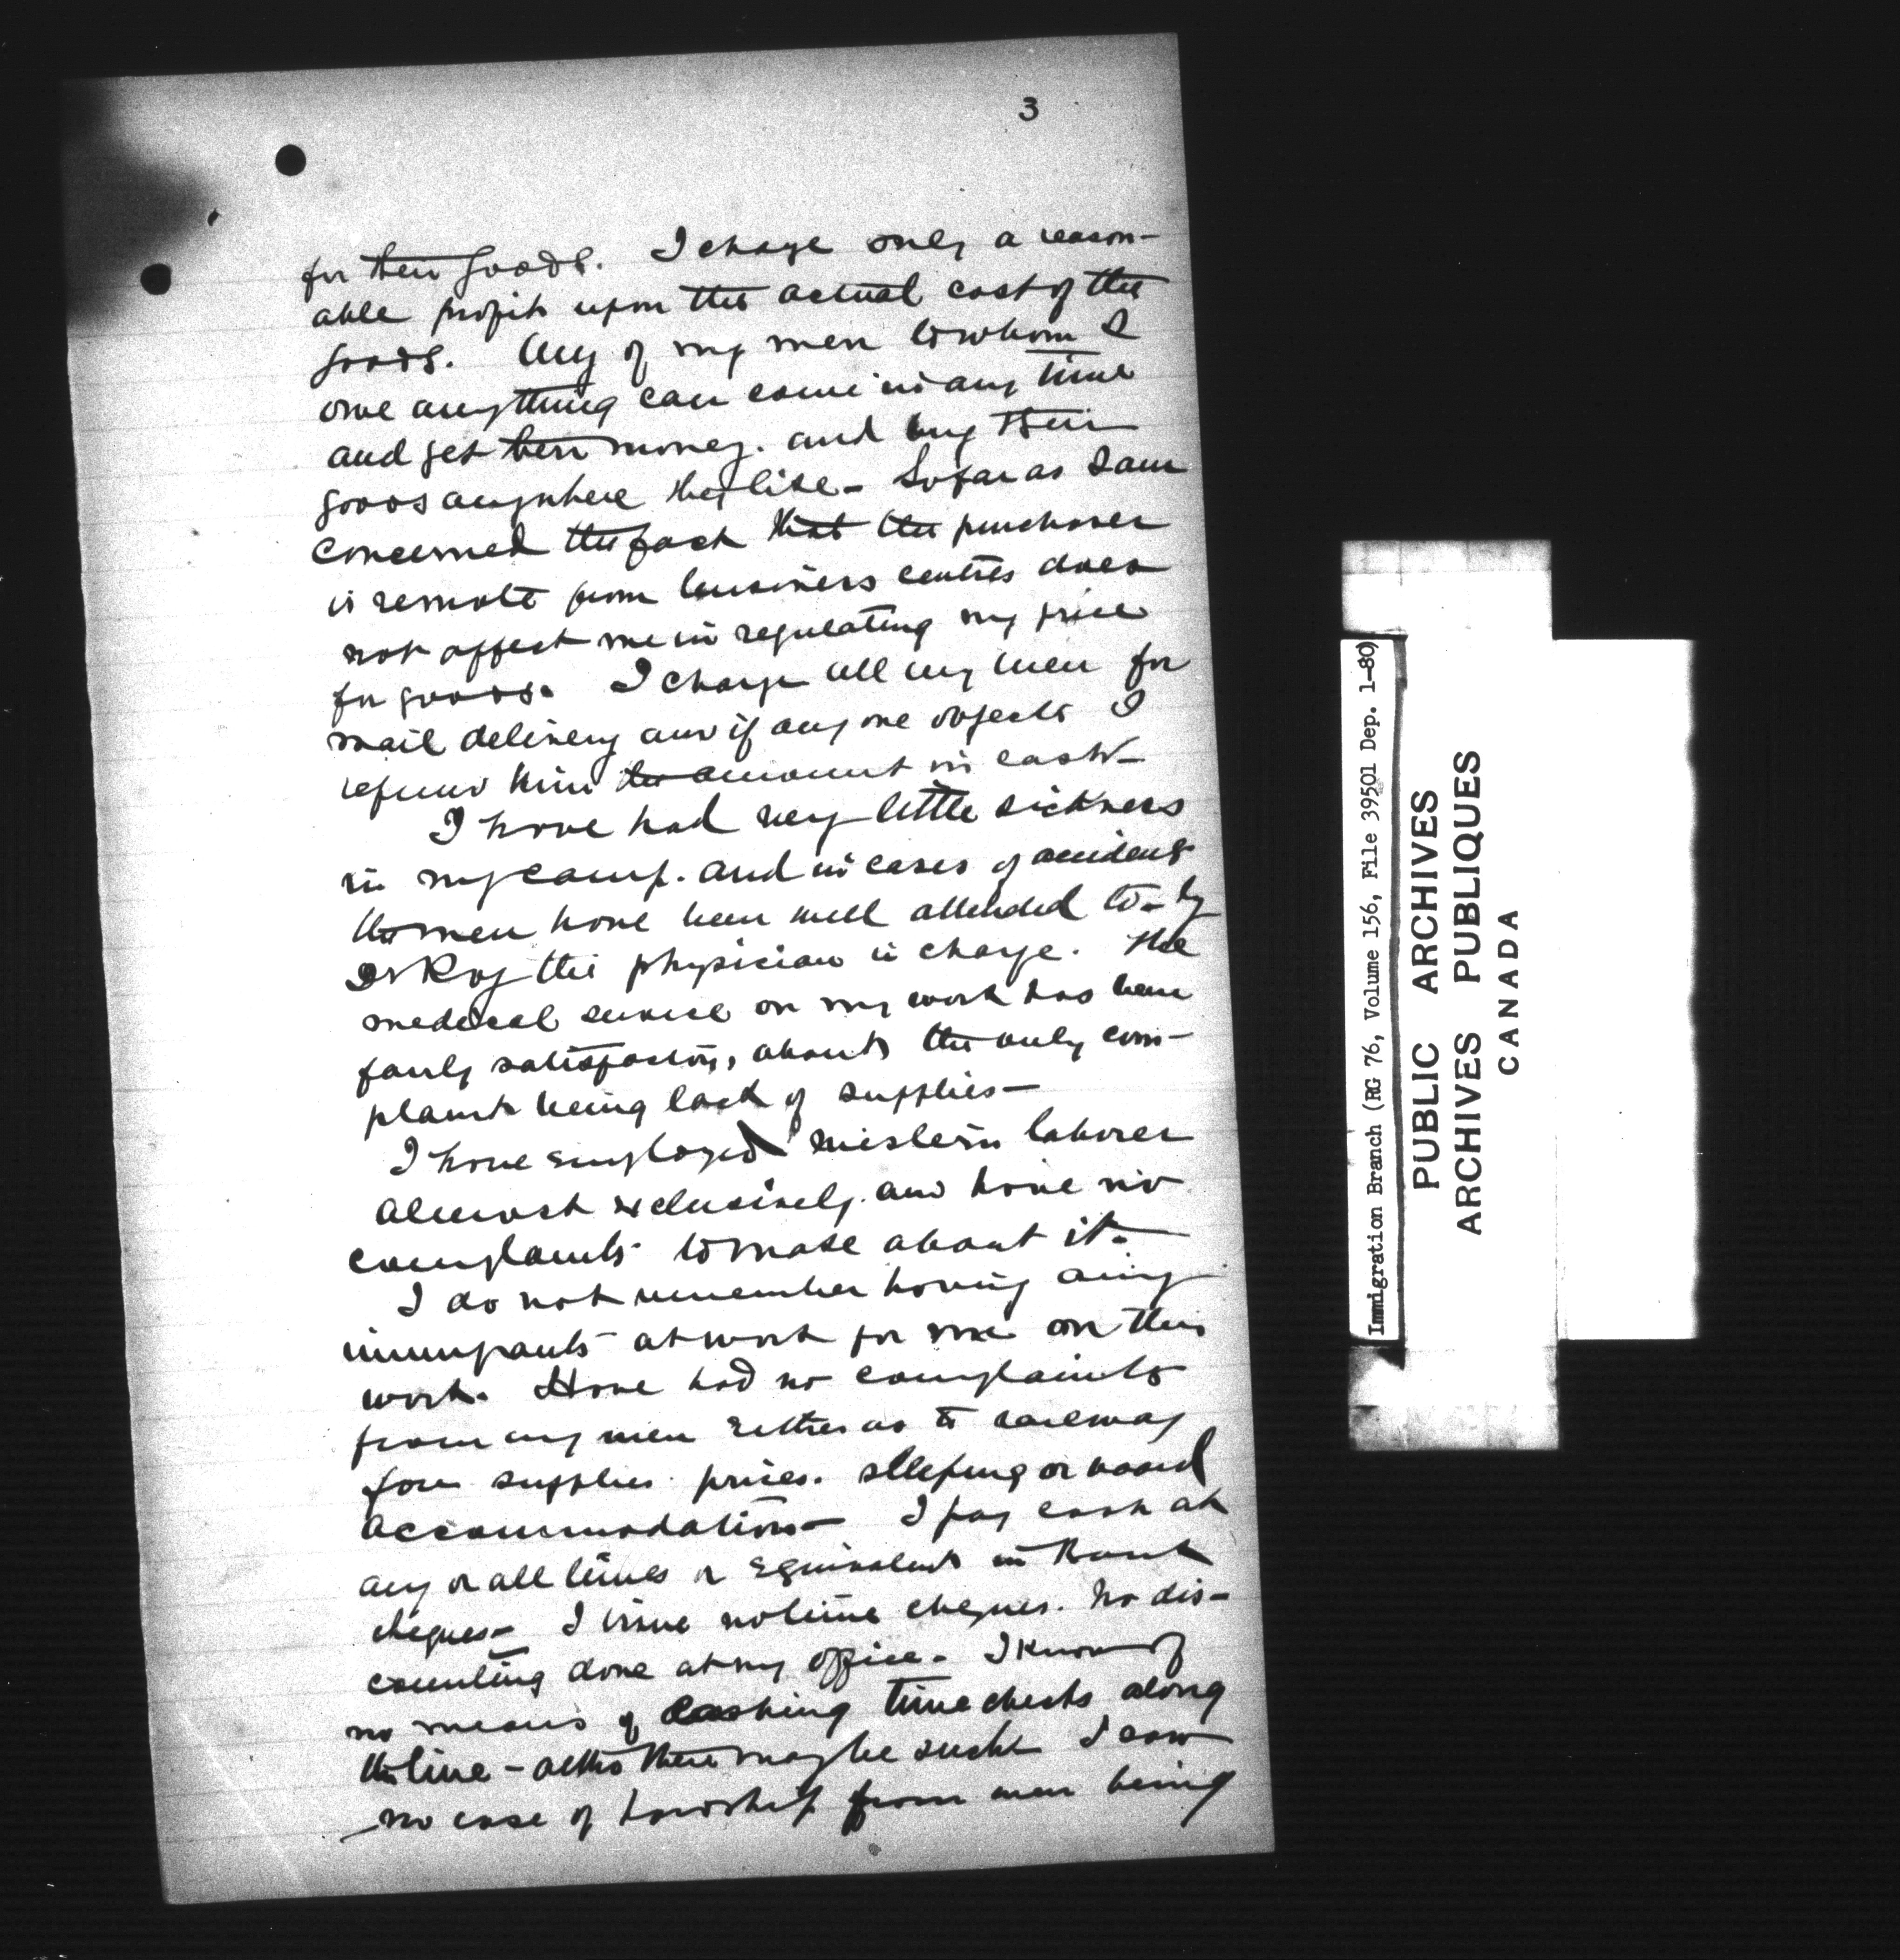 3
for their goods. I charge only a reason-
able profit upon the actual cost of the
goods. Any of my men to whom I
owe anything can come in any time
and get their money. and buy their
goods anywhere they like - So far as I am
concerned the fact that the purchaser
is remote from business centres does
not affect me in regulating my price
for goods. I charge all my men for
mail delivery and if any one objects I
refund him the amount in cash -
I have had very little sickness
in my camp. and in cases of accident
the men have been well attended to - by
Dr Roy the physician in charge. The
medical service on my work has been
fairly satisfactory, about the only com-
plaint being lack of supplies -
I have employed western laborer
almost exclusively. and have no
complaints to make about it -
I do not remember having any
immigrants at work for me on this
work. Have had no complaints
from my men either as to railway
fare supplies prices. sleeping or board
accommodation - I pay cash at
any or all times or equivalent in Bank
cheques - I issue no time cheques. No dis-
counting done at my office. I know of
no means of cashing time checks along
the line - altho there may be such I saw
no case of hardship from men being
Immigration Branch (RG 76, Volume 156, File 39501 Dep. 1-80)
PUBLIC ARCHIVES
ARCHIVES PUBLIQUES
CANADA